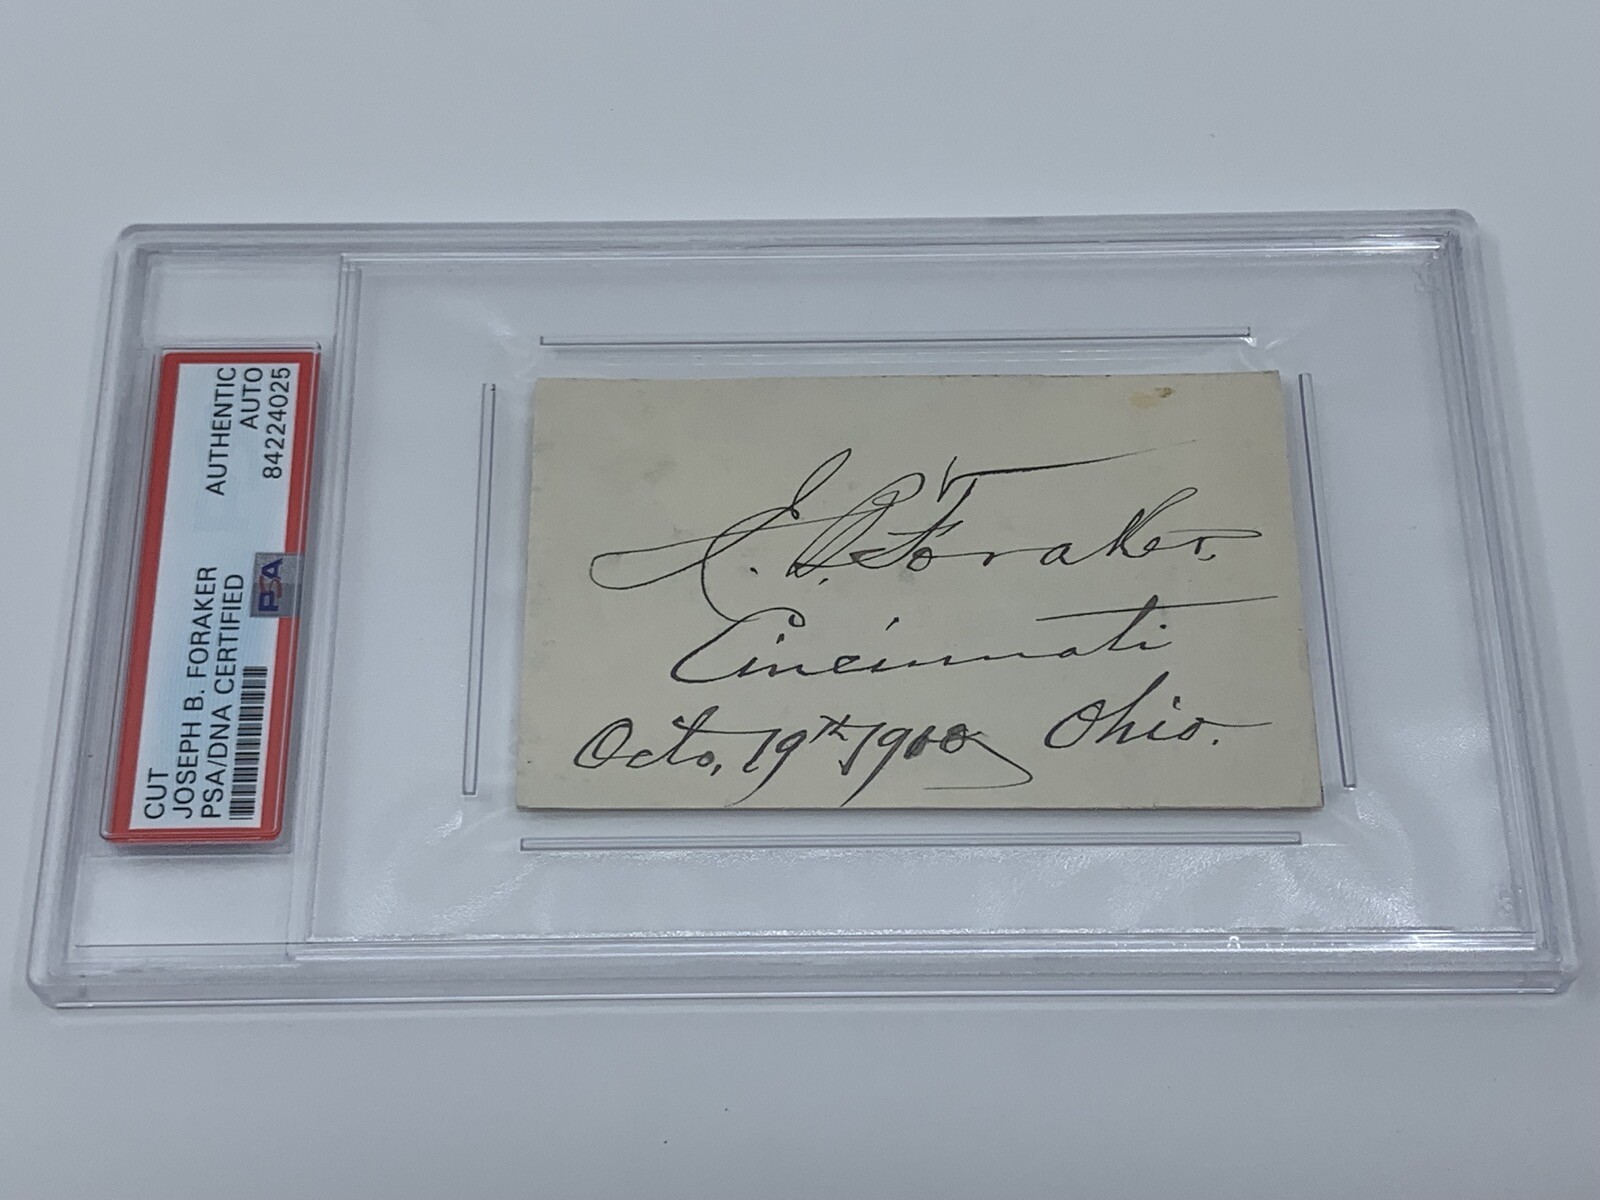 CUT
JOSEPH B. FORAKER
PSA/DNA CERTIFIED
AUTHENTIC
AUTO
84224025
PSA
J. B. Foraker.
Cincinnati
Ohio.
Octo, 19th,